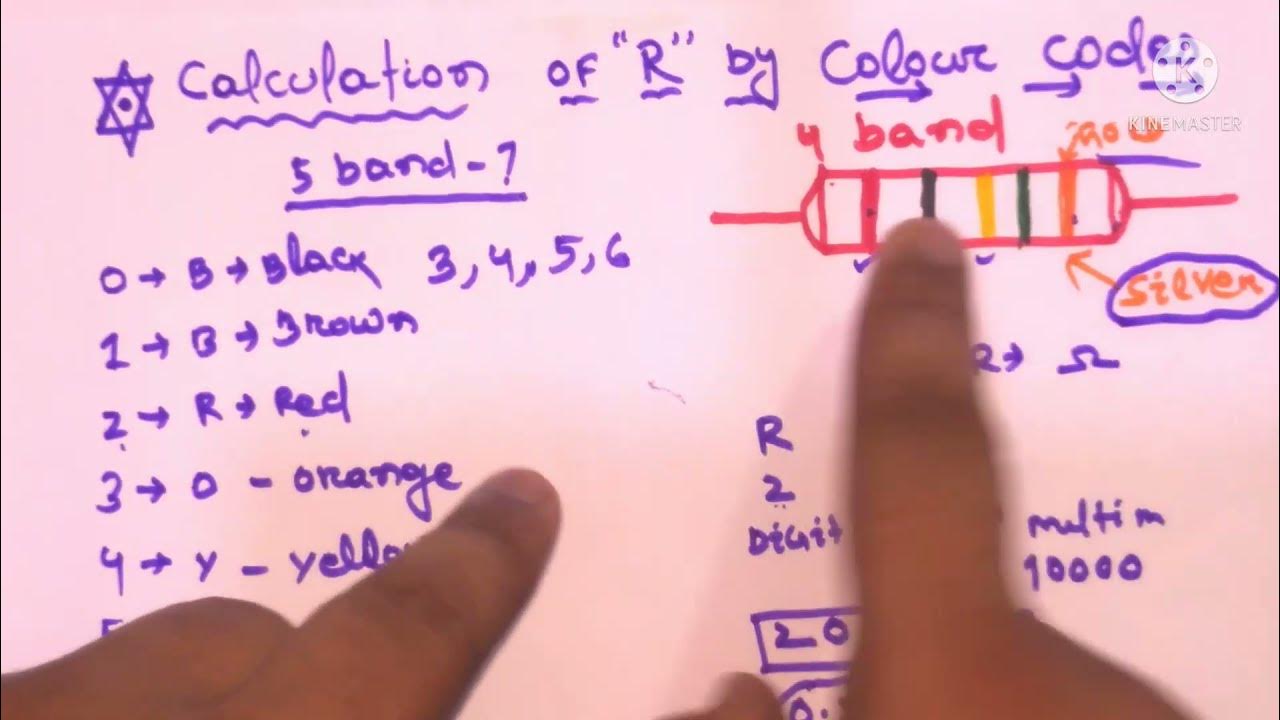 Calculation of "R" by Colour codes
KINEMASTER
4 band
5 band - ?
silver
0 → B → Black 3, 4, 5, 6
1 → B → Brown
2 → R → Red
3 → O - orange
4 → Y -
R → Ω
R
2
Digit
multim
10000
20
0.